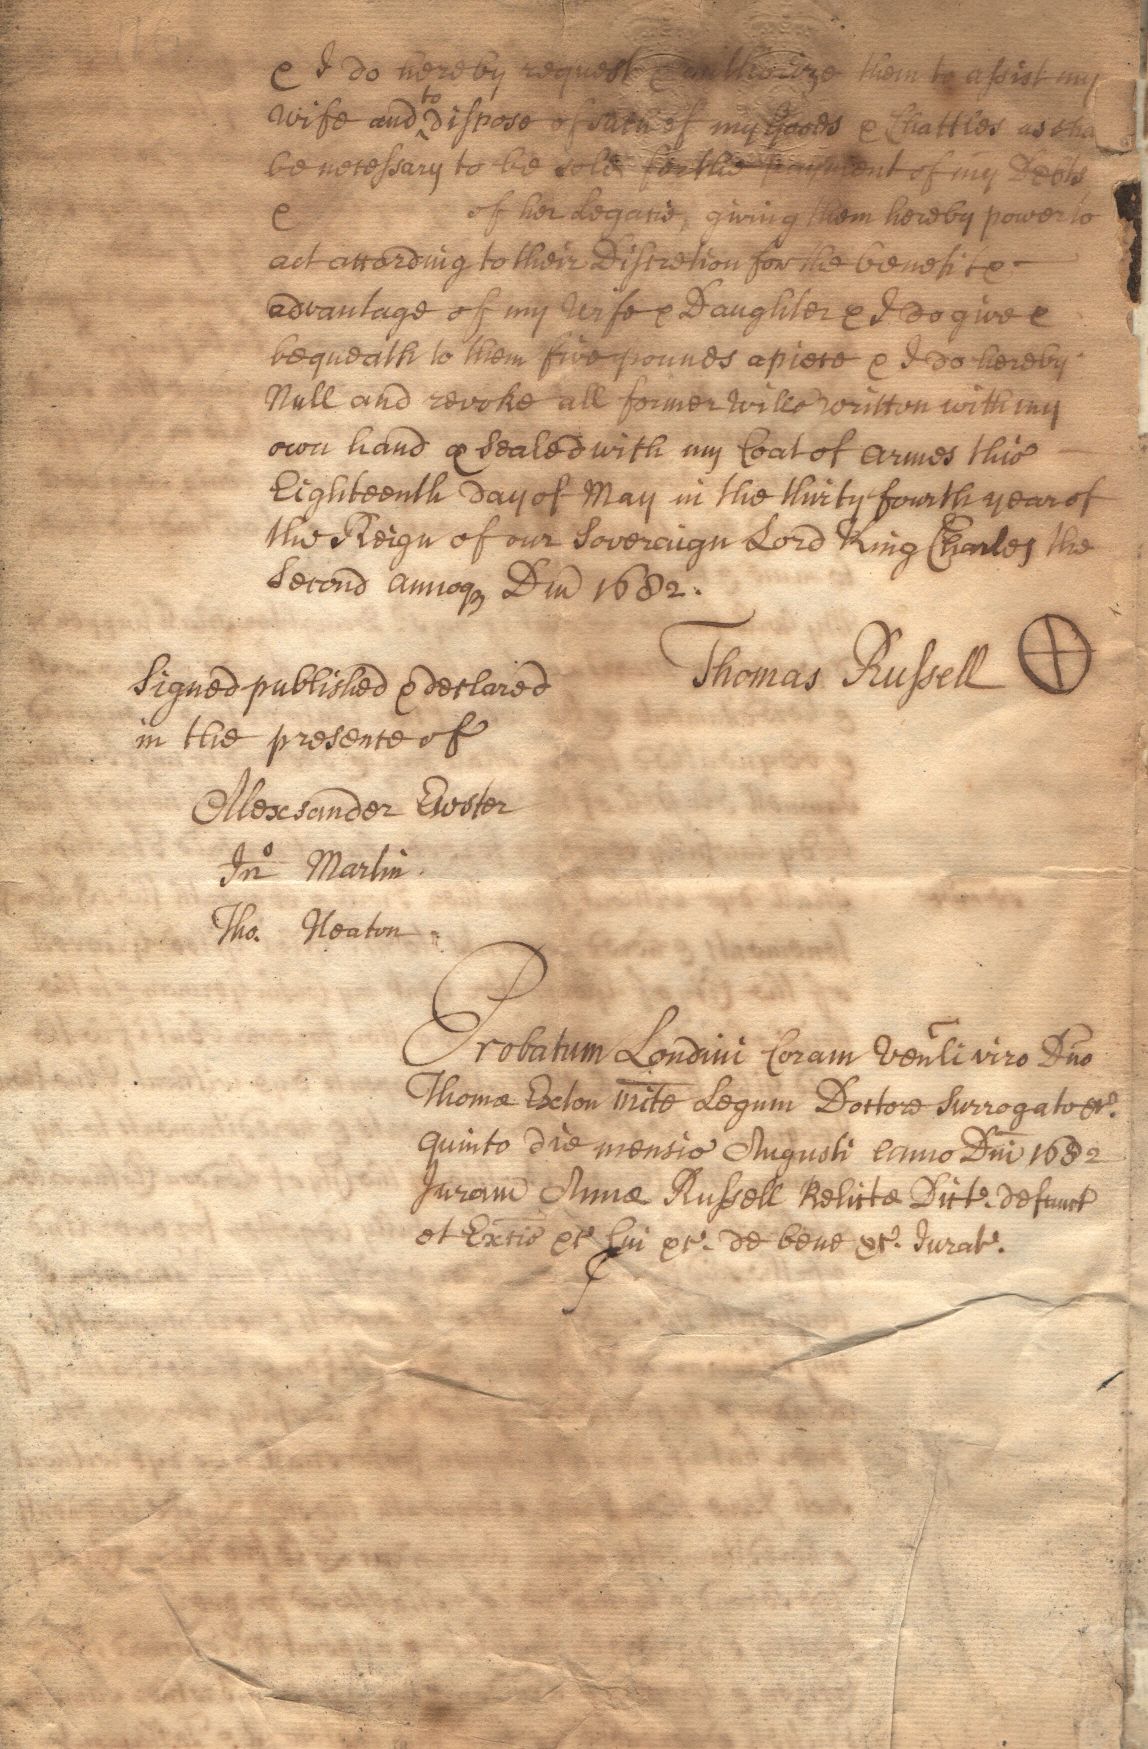 & I do hereby request & authorize them to assist my
Wife and to dispose of such of my Goods & Chattles as sha
be necessary to be sold for the payment of my Debts
& of her Legacie, giving them hereby power to
act according to their Discretion for the benefit &
advantage of my Wife & Daughter & I do give &
bequeath to them five pounds apiece & I do hereby
Null and revoke all former Wills written with my
own hand & sealed with my Coat of Armes this
Eighteenth day of May in the thirty fourth year of
the Reign of our Soveraign Lord King Charles the
Second Annoq Dm̄ 1682.
Thomas Russell
Signed published & declared
in the presence of
Alexsander Ewster
Jno Martin
Tho. Neaton
Probatum Londini Coram Venli viro Dno
Thoma Exton milite Legum Doctore Surrogato &c.
quinto die mensis Augusti Anno Dm̄ 1682
Juram Annæ Russell Relictæ Dict. defunct
et Extcis &c. Cui &c. de bene &c. Jurat.